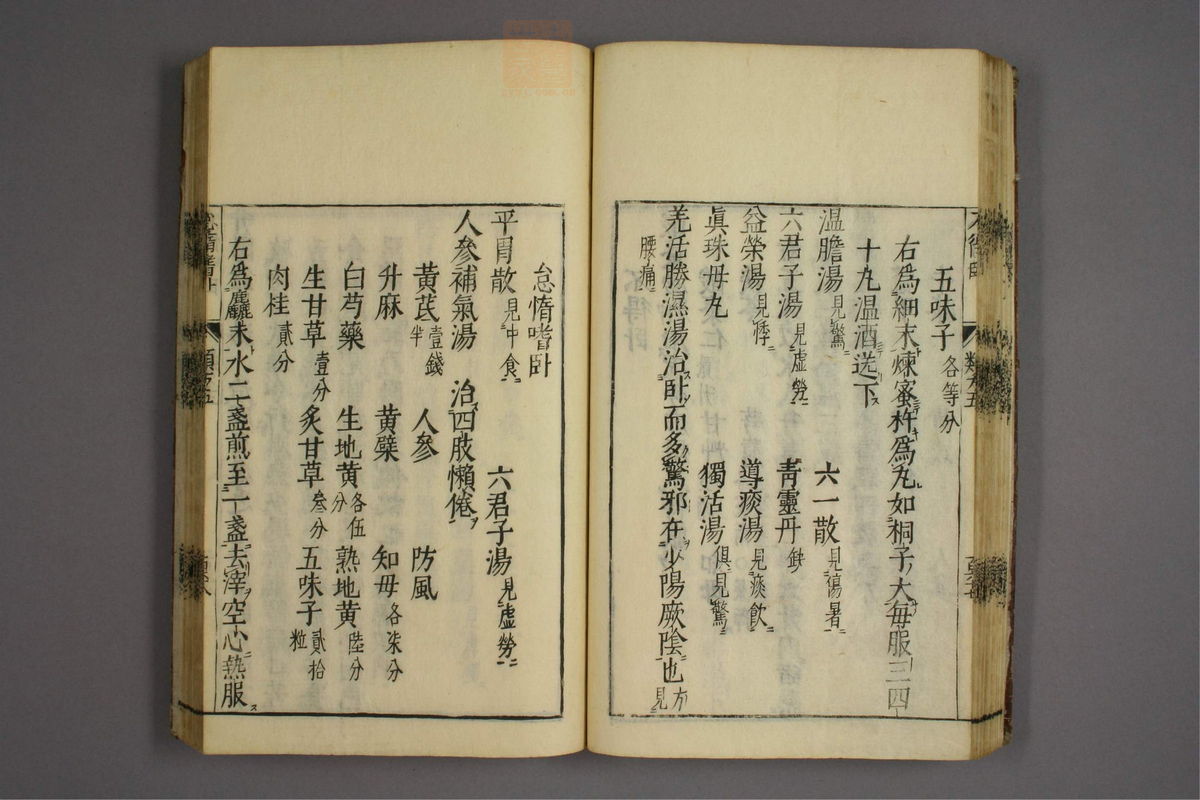 五味子各等分
右爲細末煉蜜杵爲丸如桐子大每服三四
十丸温酒送下
温膽湯見驚 六一散見傷暑
六君子湯見虛勞 青靈丹缺
益榮湯見悸 導痰湯見痰飲
眞珠母丸 獨活湯俱見驚
羌活勝濕湯治卧而多驚邪在少陽厥陰也方見
腰痛
怠惰嗜卧
平胃散見中食 六君子湯見虛勞
人參補氣湯 治四肢懶倦
黃芪壹錢半 人參 防風
升麻 黃蘗 知母各柒分
白芍藥 生地黃各伍分 熟地黃陸分
生甘草壹分 炙甘草叄分 五味子貳拾粒
肉桂貳分
右爲麤末水二盞煎至一盞去滓空心熱服